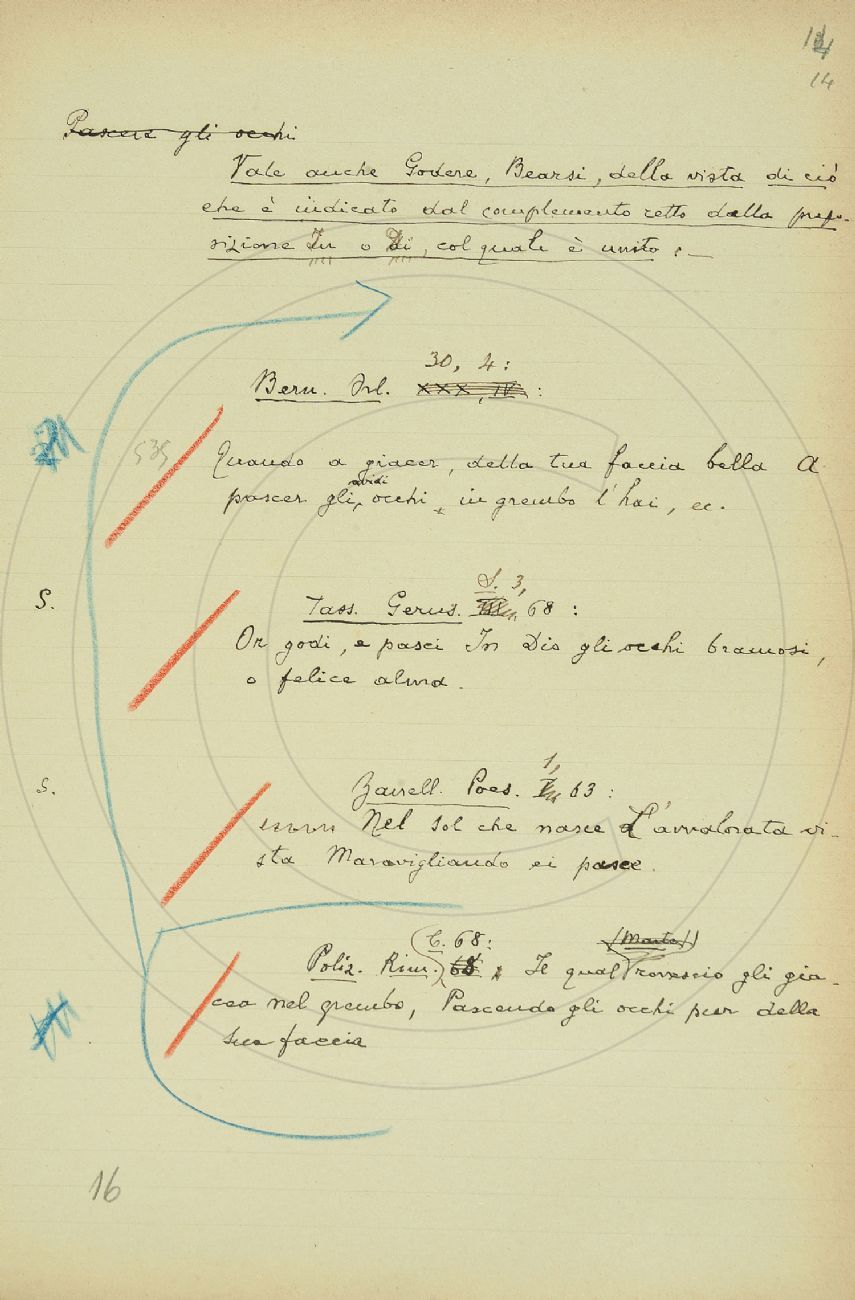 14
14
Pascere gli occhi
Vale anche Godere, Bearsi, della vista di ciò
che è indicato dal complemento retto dalla prepo-
sizione In o Di, col quale è unito: —
30, 4:
Bern. Orl. XXX, IV:
535
Quando a giacer, della tua faccia bella A
avidi
pascer gli occhi, in grembo l'hai, ec.
S. 3,
S. Tass. Gerus. 68:
Or godi, e pasci In Dio gli occhi bramosi,
o felice alma.
1,
S. Poes. I, 63:
Nel sol che nasce L'avvalorata vi-
sta Maravigliando ei pasce.
C. 68: (Marte)
Poliz. Rim. 68: Il qual rovescio gli gia-
cea nel grembo, Pascendo gli occhi pur della
sua faccia
16